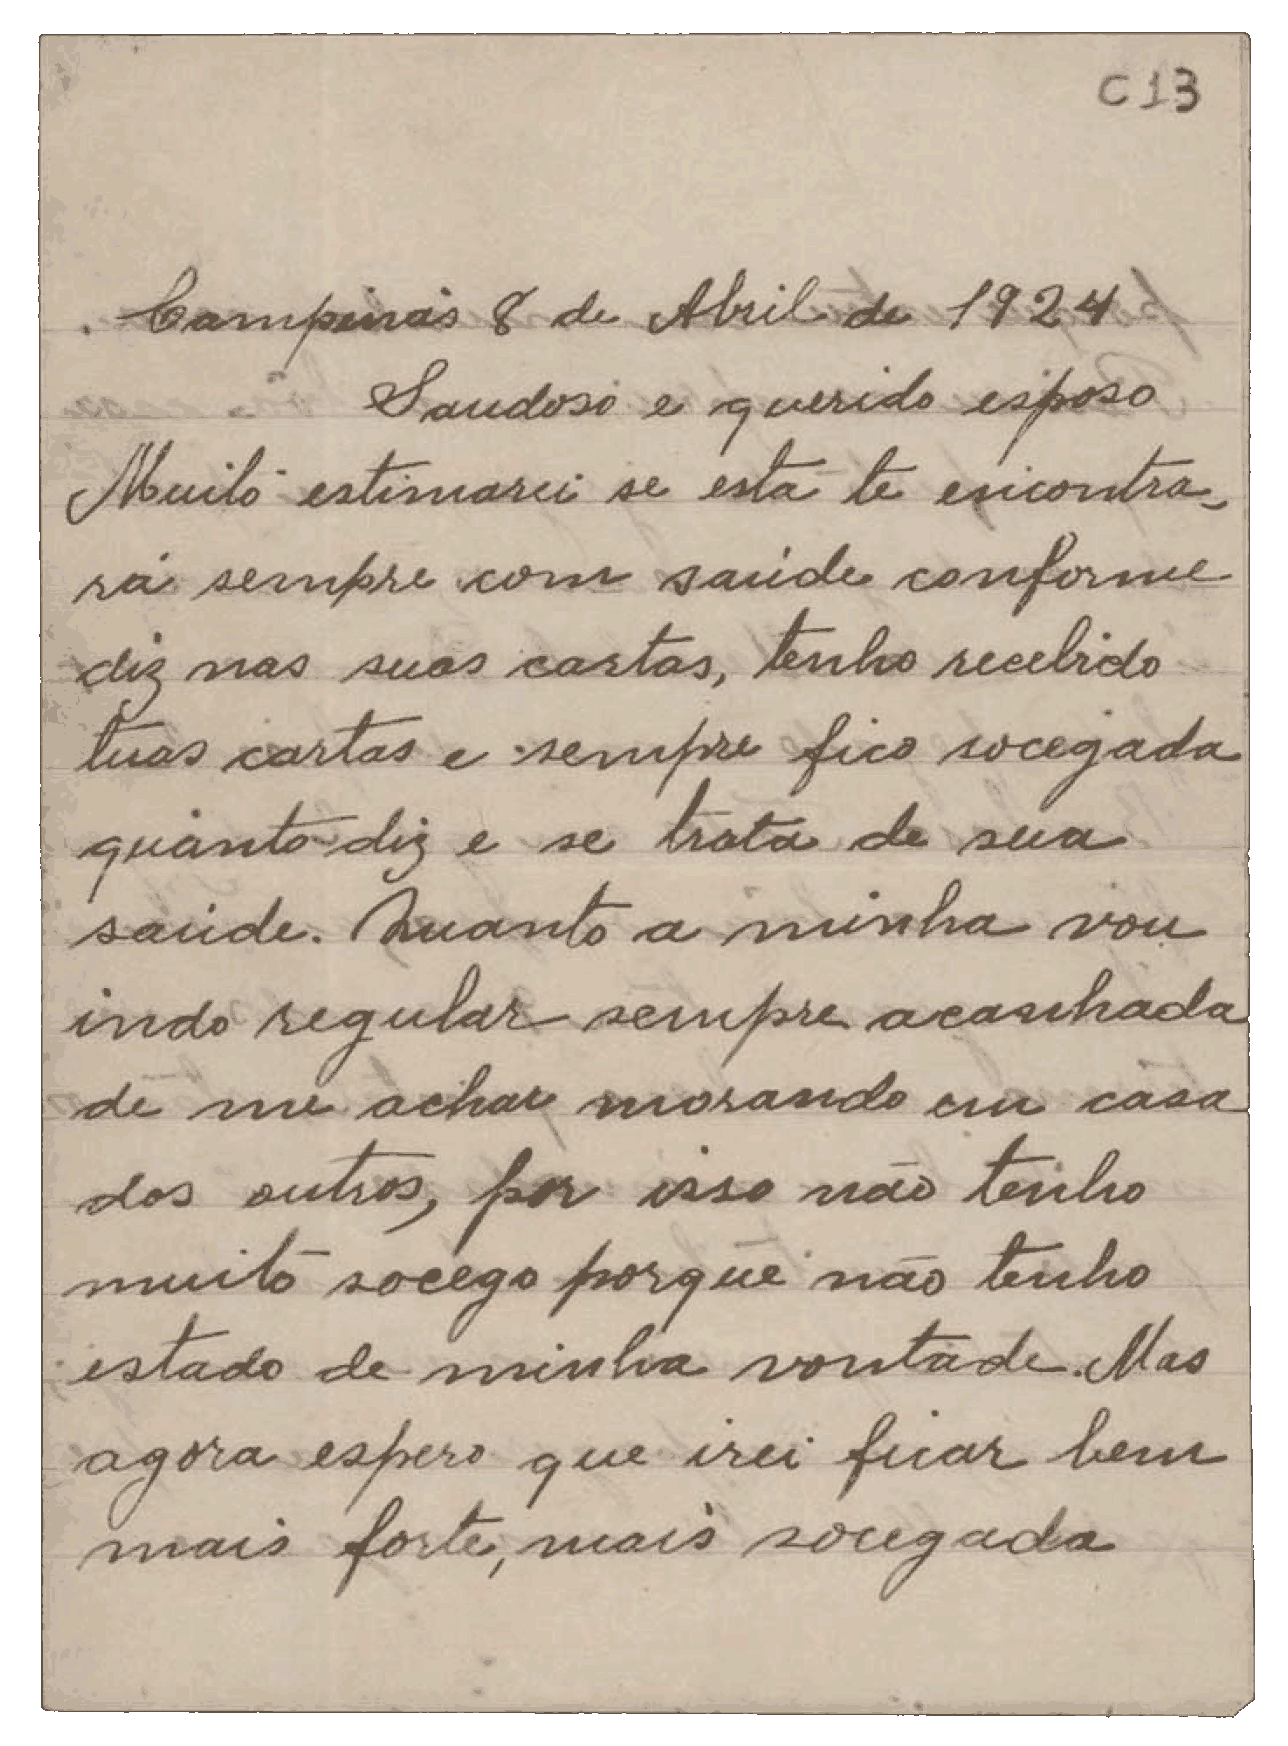 C13
Campinas 8 de Abril de 1924
Saudoso e querido esposo
Muito estimarei se esta te encontra-
rá sempre com saúde conforme
diz nas suas cartas, tenho recebido
tuas cartas e sempre fico socegada
quanto diz e se trata de sua
saúde. Quanto a minha vou
indo regular sempre acanhada
de me achar morando em casa
dos outros, por isso não tenho
muito socego porque não tenho
estado de minha vontade. Mas
agora espero que irei ficar bem
mais forte, mais socegada